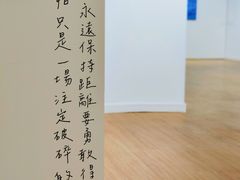 永遠保持距離要勇敢得
只是一場注定破碎的